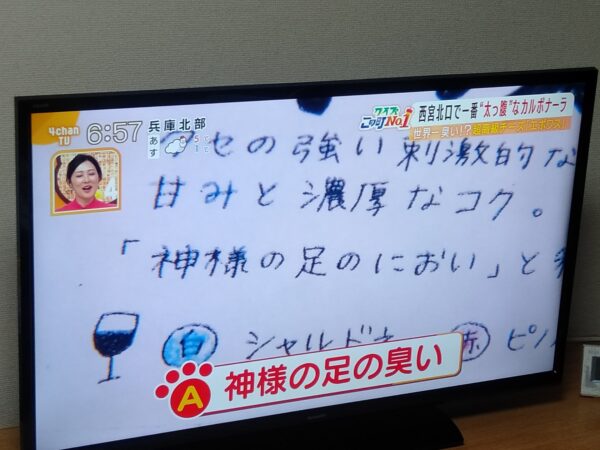 4chan TV
6:57
兵庫北部
あす
5℃
1℃
クイズ この町No.1
西宮北口で一番“太っ腹”なカルボナーラ
世界一臭い!?超高級チーズ「エポワス」
クセの強い刺激的な
甘みと濃厚なコク。
「神様の足のにおい」と
白 シャルドネ 赤 ピノ
A 神様の足の臭い